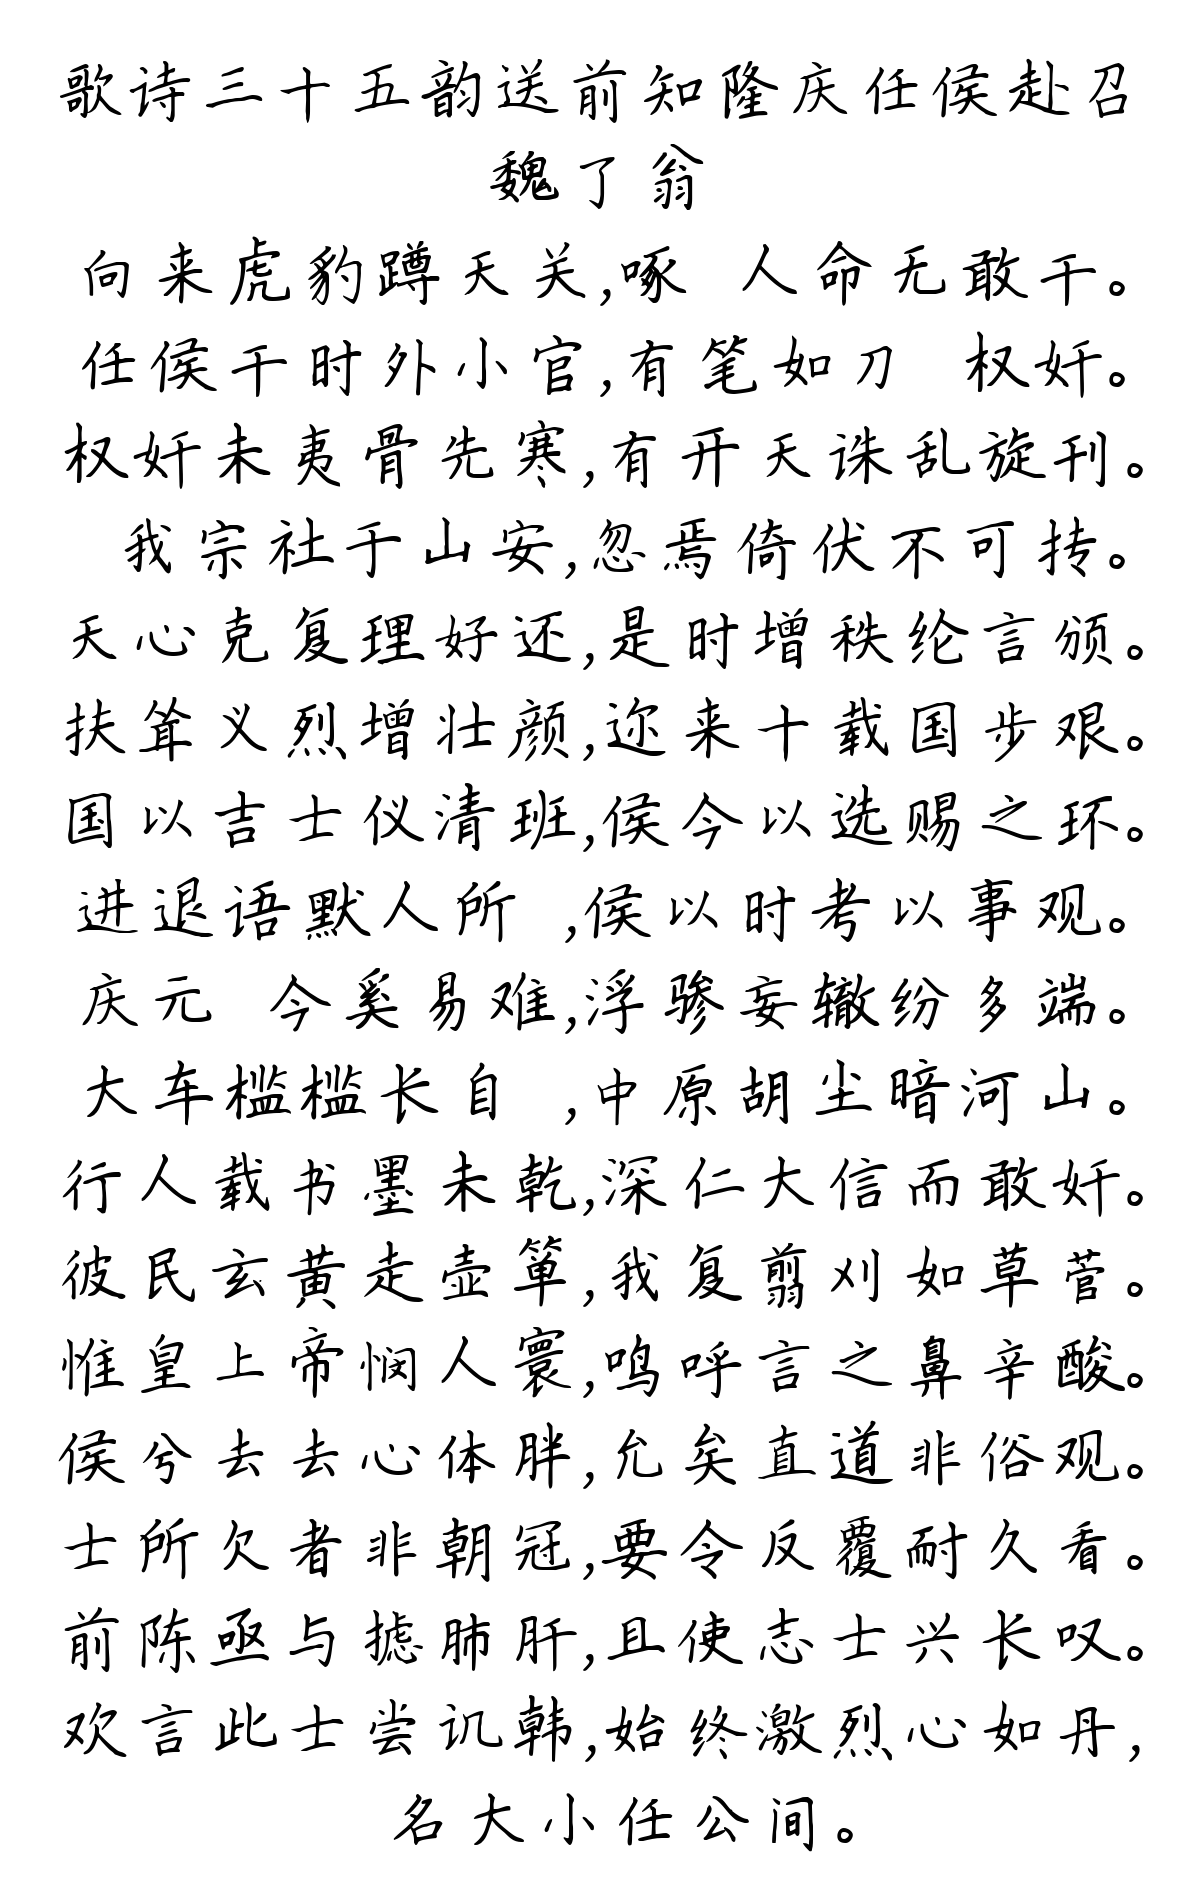 歌诗三十五韵送前知隆庆任侯赴召
魏了翁
向来虎豹蹲天关,啄 人命无敢干。
任侯干时外小官,有笔如刀 权奸。
权奸未夷骨先寒,有开天诛乱旋刊。
我宗社于山安,忽焉倚伏不可抟。
天心克复理好还,是时增秩纶言颁。
扶耸义烈增壮颜,迩来十载国步艰。
国以吉士仪清班,侯今以选赐之环。
进退语默人所 ,侯以时考以事观。
庆元 今奚易难,浮骖妄辙纷多端。
大车槛槛长自 ,中原胡尘暗河山。
行人载书墨未乾,深仁大信而敢奸。
彼民玄黄走壶箪,我复剪刈如草菅。
惟皇上帝悯人寰,鸣呼言之鼻辛酸。
侯兮去去心体胖,允矣直道非俗观。
士所欠者非朝冠,要令反覆耐久看。
前陈亟与摅肺肝,且使志士兴长叹。
欢言此士尝讥韩,始终激烈心如丹,
名大小任公间。